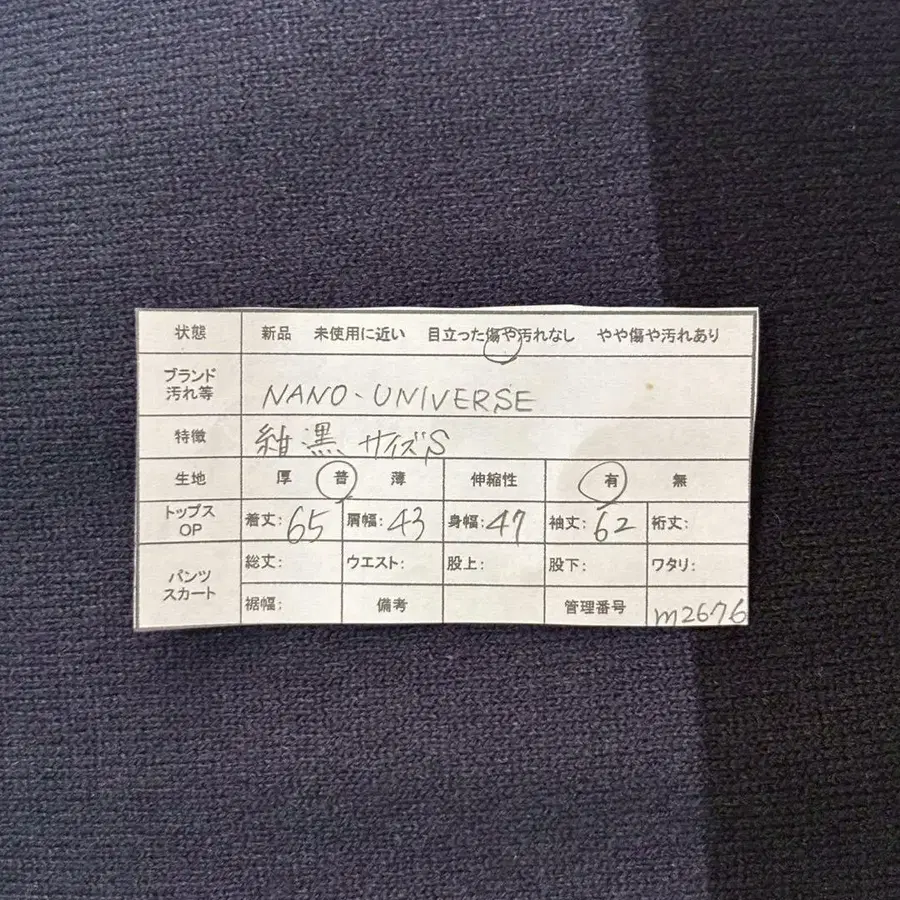 状態 新品 未使用に近い 目立った傷や汚れなし やや傷や汚れあり
ブランド
汚れ等 NANO・UNIVERSE
特徴 紺 黒 サイズS
生地 厚 普 薄 伸縮性 有 無
トップス
OP 着丈:65 肩幅:43 身幅:47 袖丈:62 裄丈:
パンツ
スカート 総丈: ウエスト: 股上: 股下: ワタリ:
裾幅: 備考 管理番号 m2676